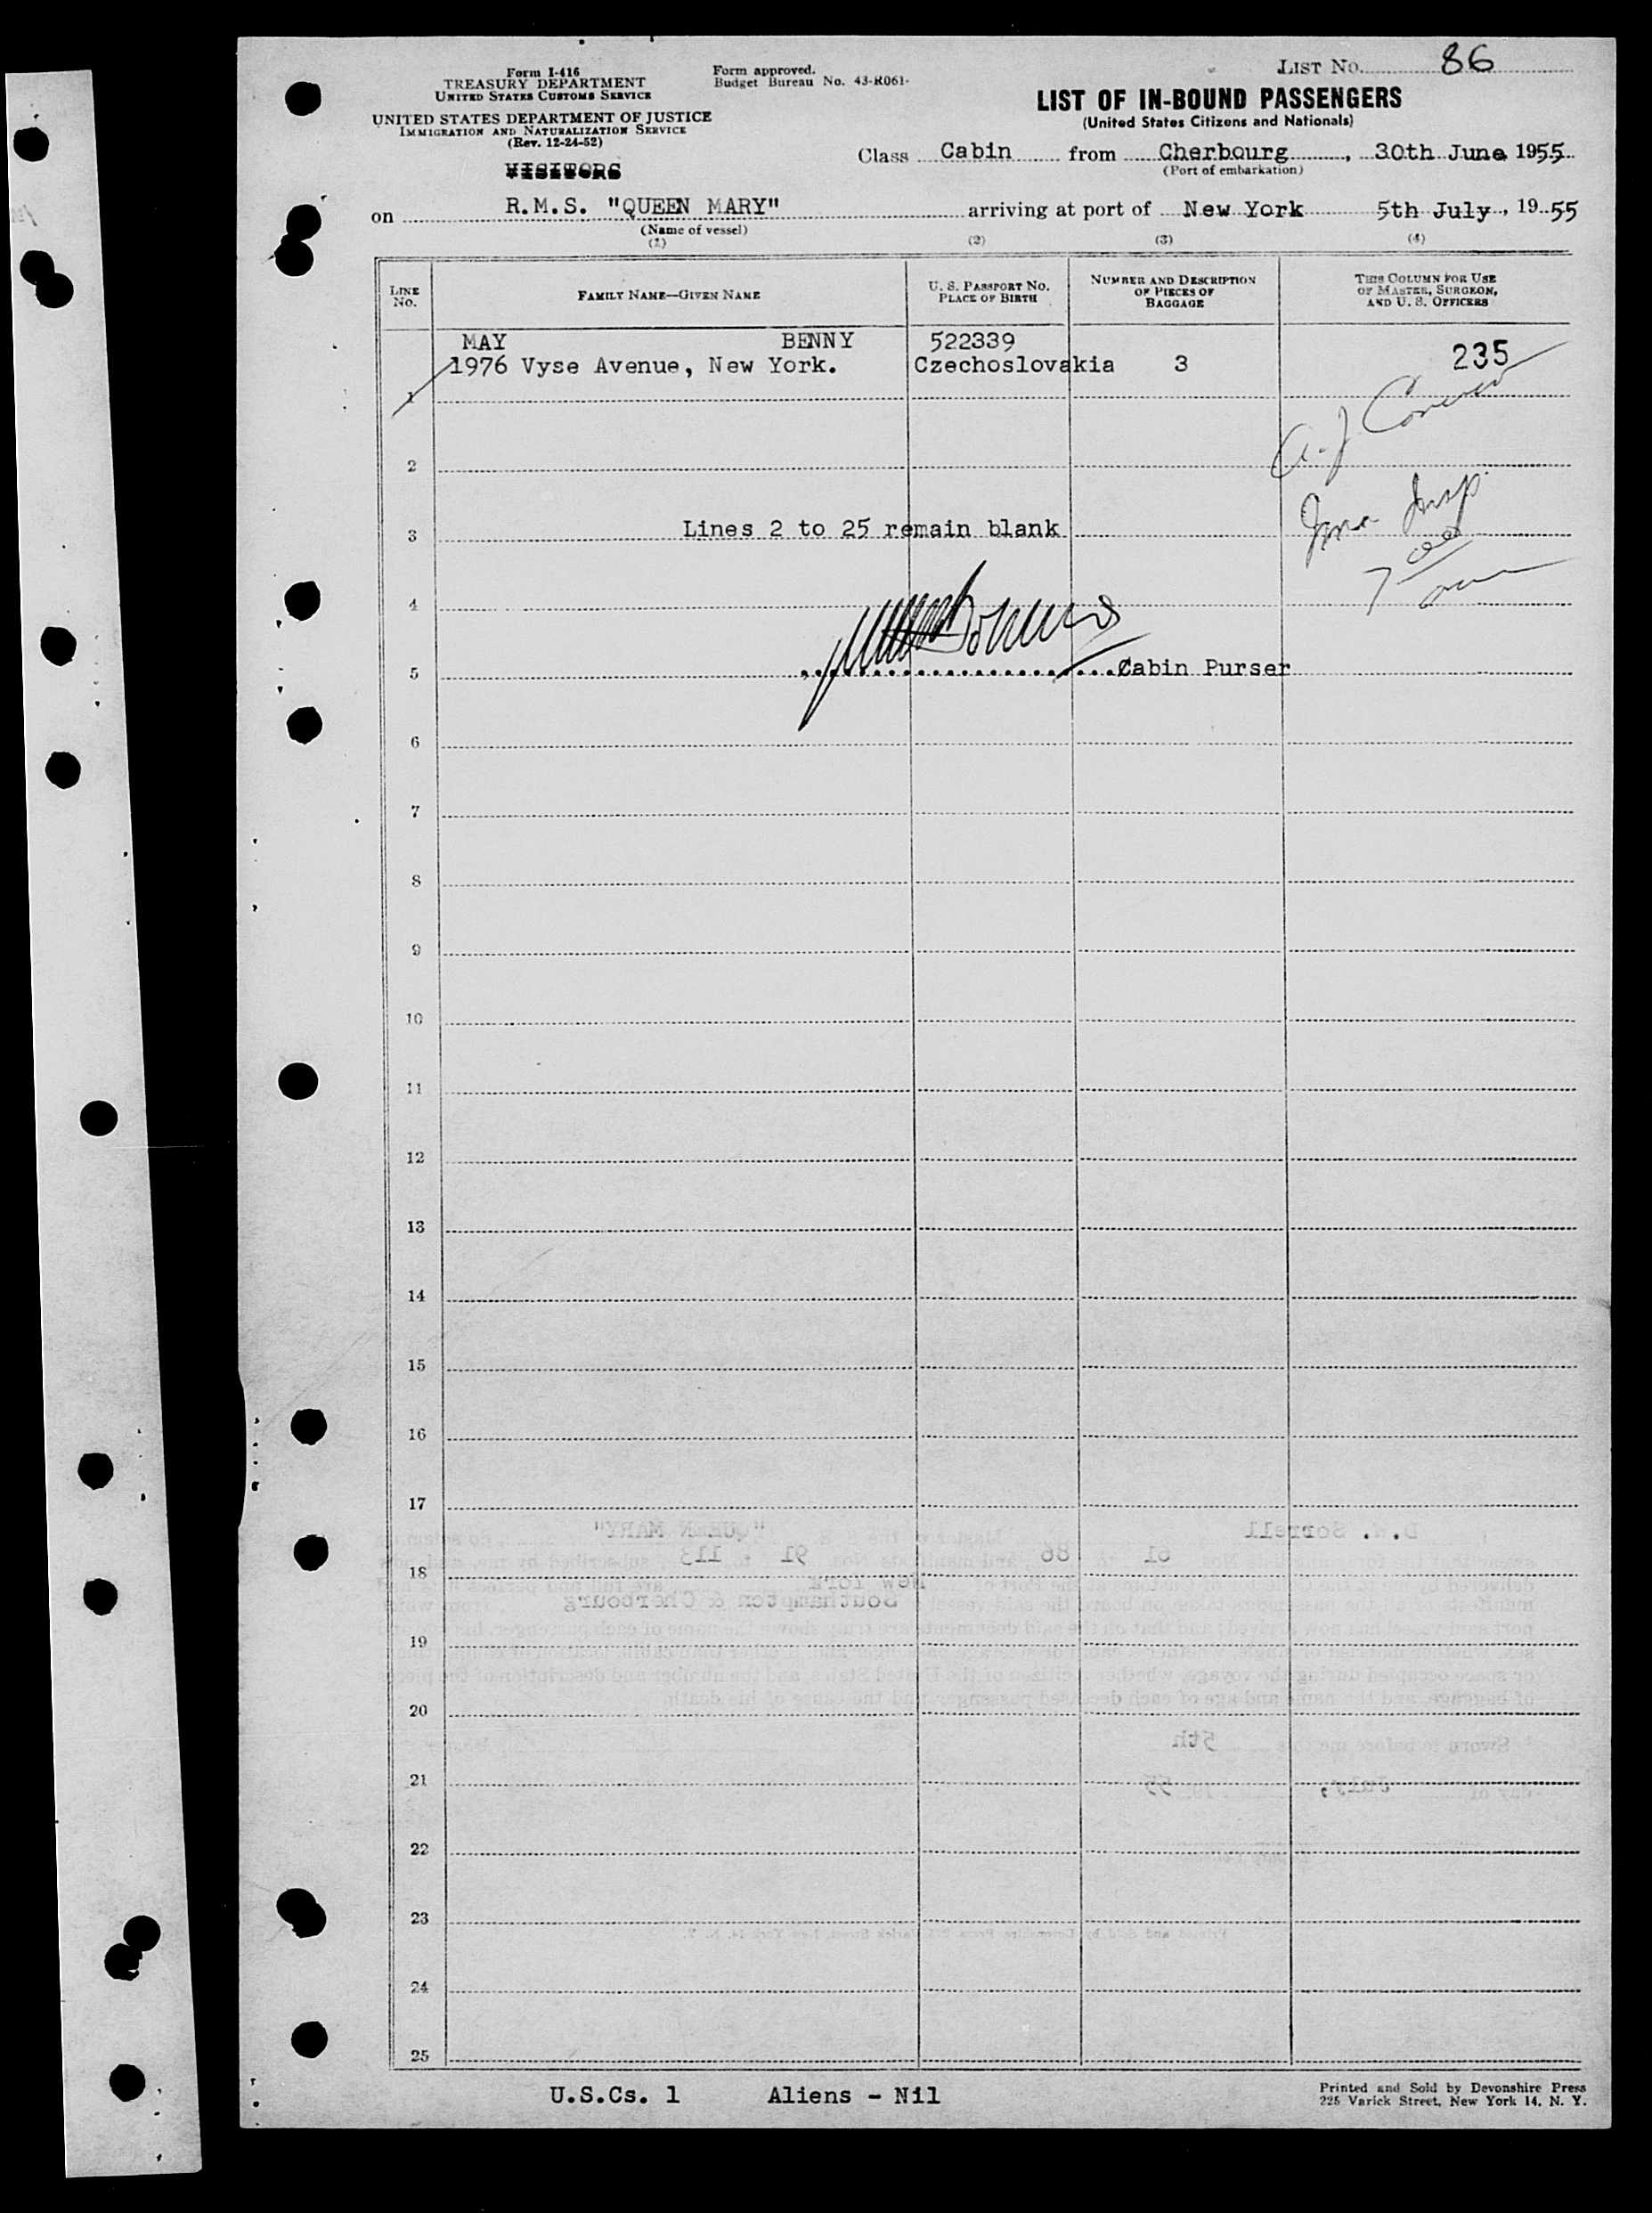 LIST No. 86
Form I-416
TREASURY DEPARTMENT
UNITED STATES CUSTOMS SERVICE
UNITED STATES DEPARTMENT OF JUSTICE
IMMIGRATION AND NATURALIZATION SERVICE
(Rev. 12-24-52)
Form approved.
Budget Bureau No. 43-R061.
VISITORS
LIST OF IN-BOUND PASSENGERS
(United States Citizens and Nationals)
Class Cabin from Cherbourg, 30th June 1955
(Port of embarkation)
on R.M.S. "QUEEN MARY" arriving at port of New York 5th July, 1955
(Name of vessel)
(1) (2) (3) (4)
LINE No. FAMILY NAME—GIVEN NAME U. S. PASSPORT NO. PLACE OF BIRTH NUMBER AND DESCRIPTION OF PIECES OF BAGGAGE THIS COLUMN FOR USE OF MASTER, SURGEON, AND U. S. OFFICERS
MAY BENNY 522339
1976 Vyse Avenue, New York. Czechoslovakia 3 235
1
2
Imm Insp
3 Lines 2 to 25 remain blank
4
5 Cabin Purser
6
7
8
9
10
11
12
13
14
15
16
17
"QUEEN MARY" D.W. Sorrell
113 91 86 61
18
New York
Southampton & Cherbourg
19
20
5th
21
55 July,
22
23
24
25
U.S.Cs. 1 Aliens - Nil
Printed and Sold by Devonshire Press
225 Varick Street, New York 14, N. Y.